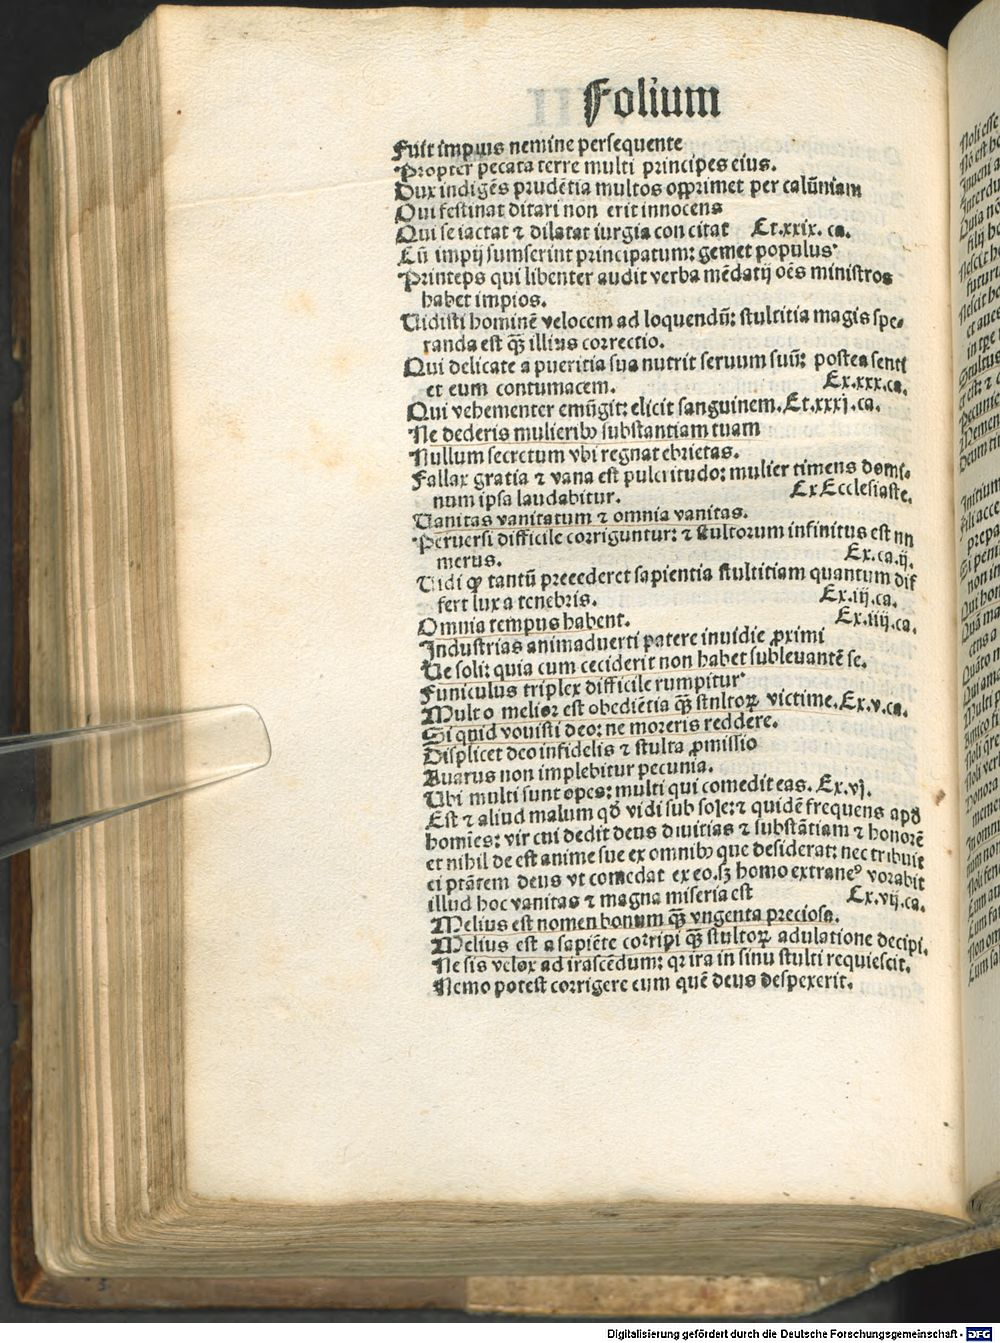 Folium
Fuit impius nemine persequente
Propter pecata terre multi principes eius.
Dux indigẽs prudẽtia multos opprimet per calũniam
Qui festinat ditari non erit innocens
Qui se iactat ⁊ dilatat iurgia concitat Et.xxix. ca.
Cũ impij sumserint principatum: gemet populus
Printeps qui libenter audit verba mẽdatij oẽs ministros
habet impios.
Vidisti hominẽ velocem ad loquendũ: stultitia magis spe-
randa est q̃ illius correctio.
Qui delicate a pueritia sua nutrit seruum suũ: postea senti
et eum contumacem. Ex.xxx.ca.
Qui vehementer emũgit: elicit sanguinem. Et.xxxj.ca.
Ne dederis mulierib⁹ substantiam tuam
Nullum secretum vbi regnat ebrietas.
Fallax gratia ⁊ vana est pulcritudo: mulier timens domi-
num ipsa laudabitur. Ex Ecclesiaste.
Vanitas vanitatum ⁊ omnia vanitas.
Peruersi difficile corriguntur: ⁊ stultorum infinitus est nu
merus. Ex.ca.ij.
Vidi ꝙ tantũ precederet sapientia stultitiam quantum dif
fert lux a tenebris. Ex.iij.ca.
Omnia tempus habent. Ex.iiij.ca.
Industrias animaduerti patere inuidie ꝓximi
Ve soli: quia cum ceciderit non habet subleuantẽ se.
Funiculus triplex difficile rumpitur
Multo melior est obediẽtia q̃ stultoꝝ victime. Ex.v.ca.
Si quid vouisti deo: ne moreris reddere.
Displicet deo infidelis ⁊ stulta ꝓmissio
Auarus non implebitur pecunia.
Vbi multi sunt opes: multi qui comedit eas. Ex.vj.
Est ⁊ aliud malum qđ vidi sub sole: ⁊ quidẽ frequens apđ
homĩes: vir cui dedit deus diuitias ⁊ substãtiam ⁊ honorẽ
et nihil de est anime sue ex omnib⁹ que desiderat: nec tribuit
ei ptãtem deus vt comedat ex eo. sꝫ homo extrane⁹ vorabit
illud hoc vanitas ⁊ magna miseria est Ex.vij.ca.
Melius est nomen bonum q̃ vngenta preciosa.
Melius est a sapiẽte corripi q̃ stultoꝝ adulatione decipi.
Ne sis velox ad irascẽdum: qr ira in sinu stulti requiescit.
Nemo potest corrigere eum quẽ deus despexerit.
Digitalisierung gefördert durch die Deutsche Forschungsgemeinschaft - DFG